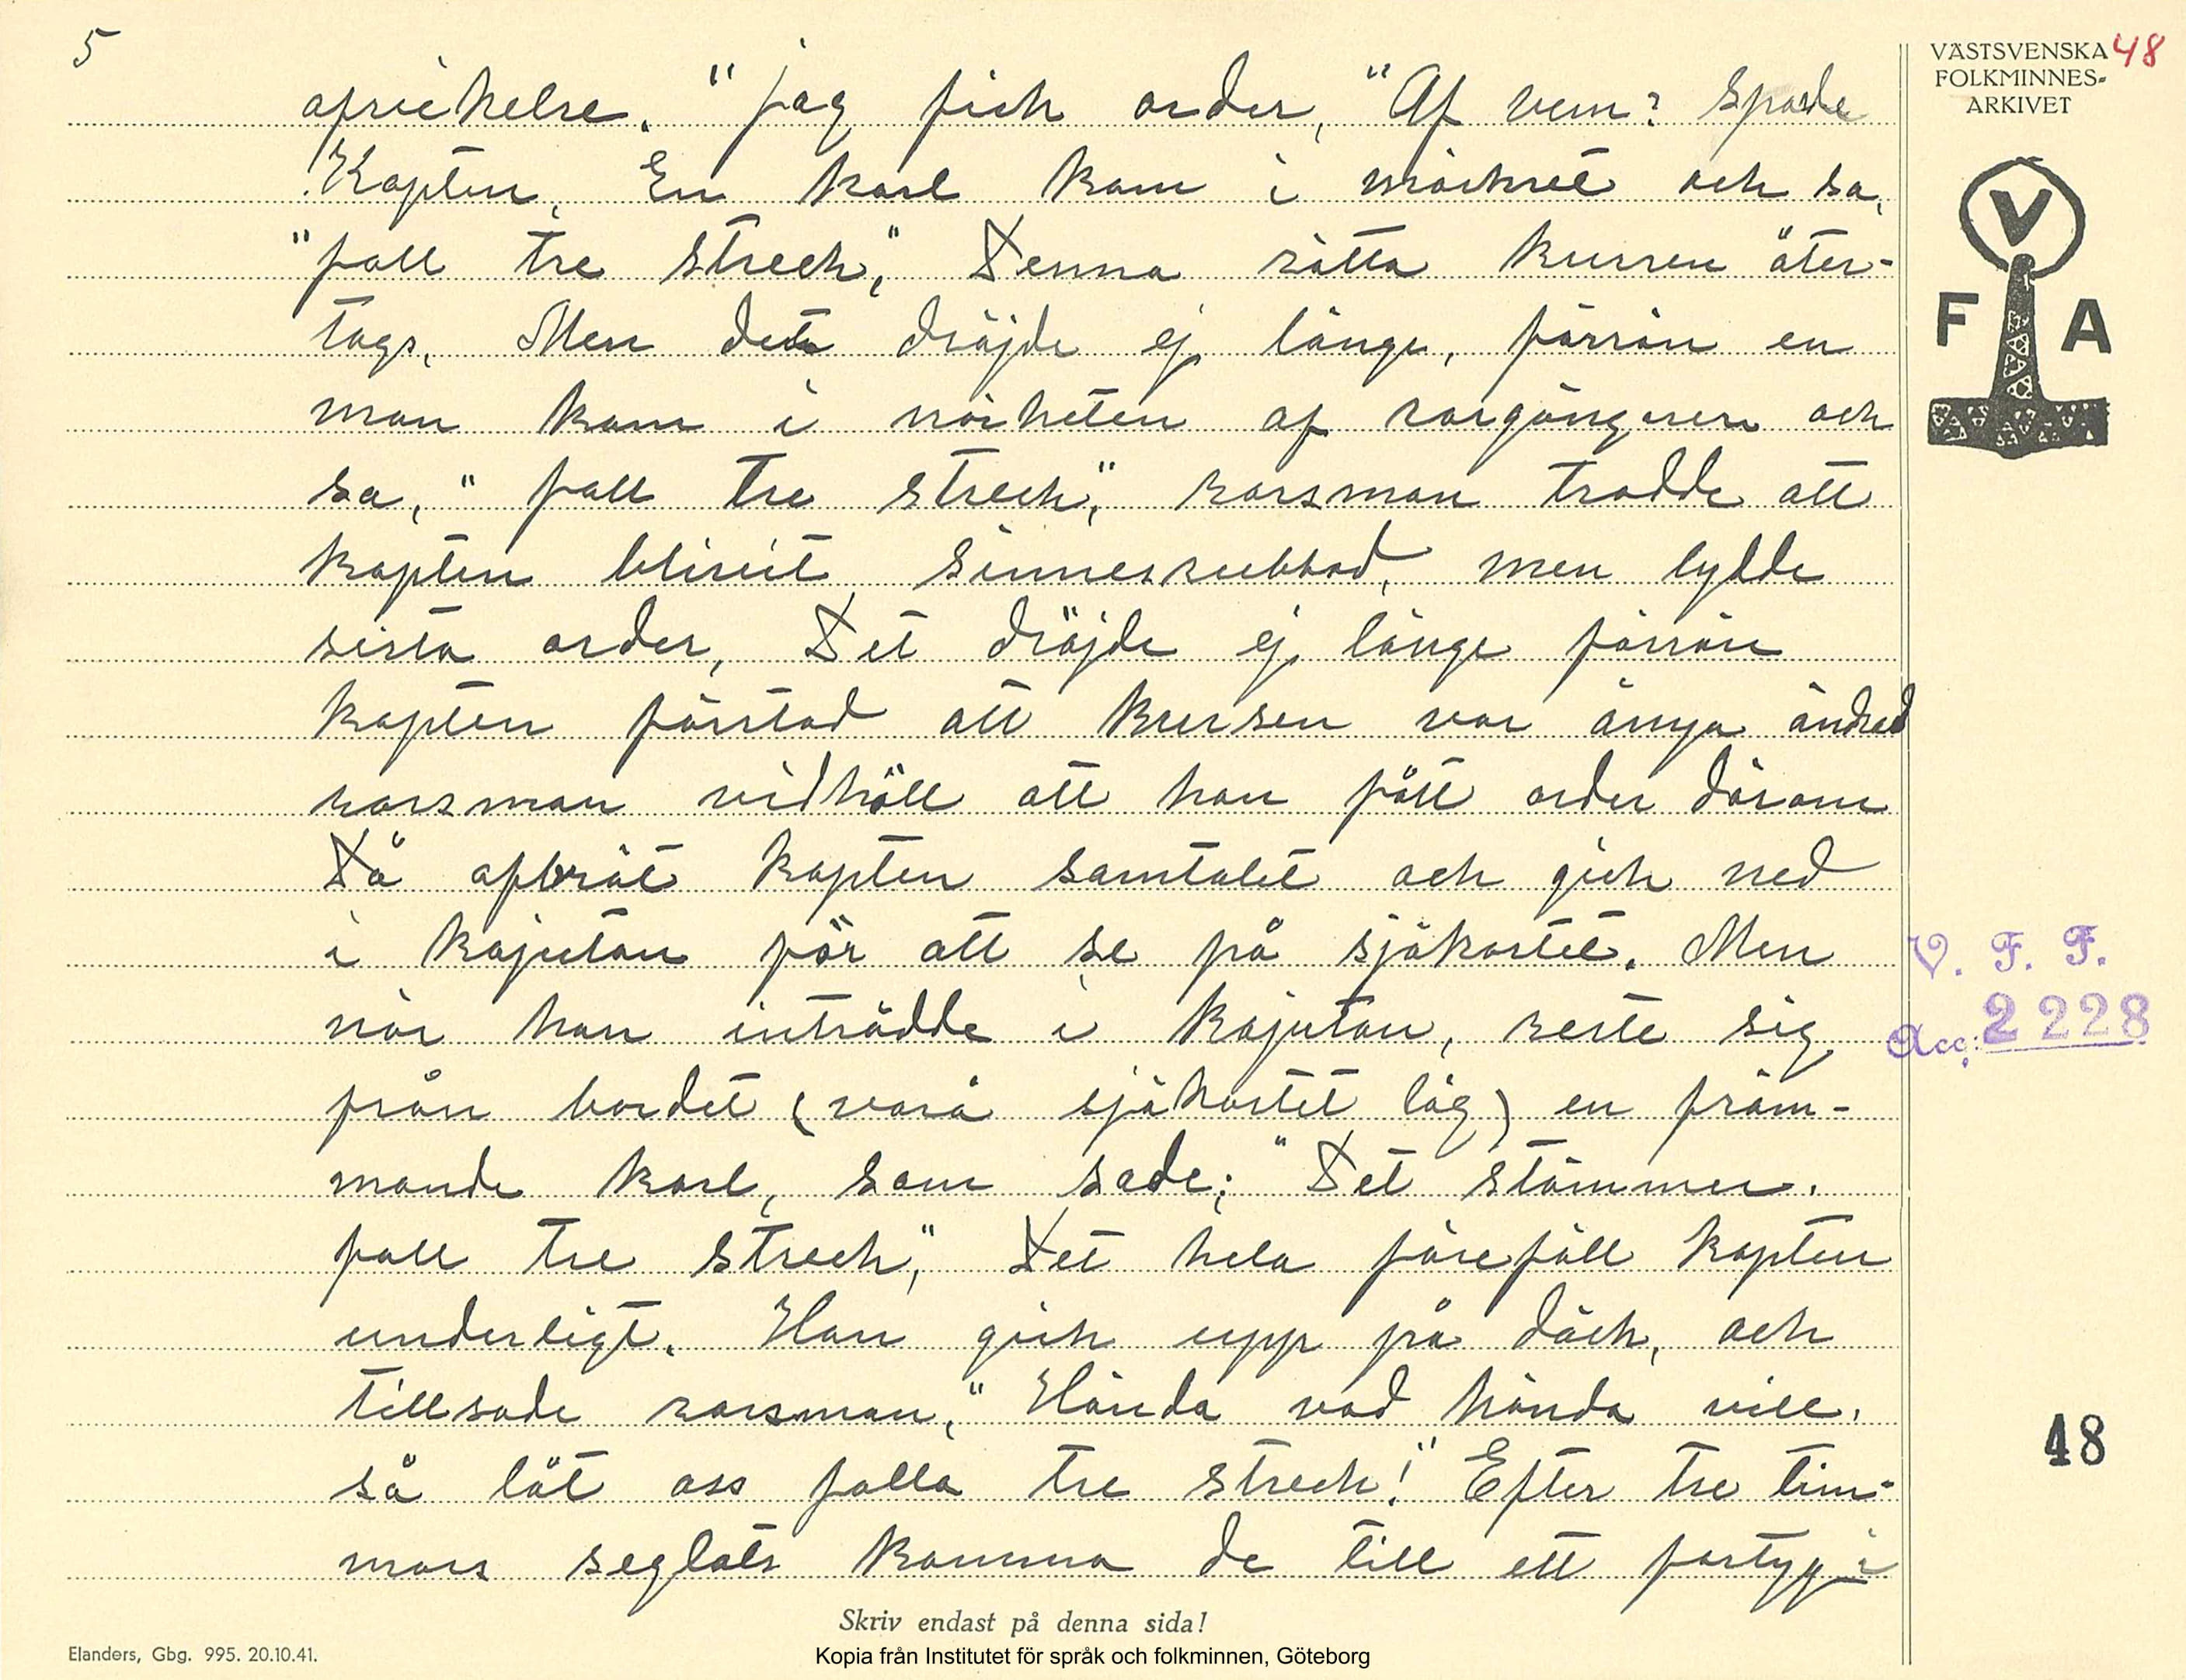 5
afvikelse. "Jag fick order, "Af vem? Sporde
Kapten, En karl kom i mörkret och sa,
"fall tre streck," Denna rätta kursen åter-
togs. Men det dröjde ej länge, förrän en
man kom i närheten af rorgängaren och
sa, "fall tre streck," rorsman trodde att
kapten blivit sinnesrubbad, men lydde
sista order, Det dröjde ej länge förrän
kapten förstod att kursen var ånyo ändrad
rorsman vidhöll att han fått order därom
Då afbröt kapten samtalet och gick ned
i kajutan för att se på sjökortet. Men
när han inträdde i kajutan, reste sig
från bordet (varå sjökortet låg) en främ-
mande karl, som sade; "Det stämmer.
fall tre streck," Det hela föreföll kapten
underligt. Han gick upp på däck, och
tillsade rorsman, "Hända vad hända vill.
så låt oss falla tre streck!" Efter tre tim-
mars seglats komma de till ett fartyg i
VÄSTSVENSKA 48
FOLKMINNES-
ARKIVET
V
F A
V. F. F.
Acc: 2228
48
Skriv endast på denna sida!
Elanders, Gbg. 995. 20.10.41.
Kopia från Institutet för språk och folkminnen, Göteborg